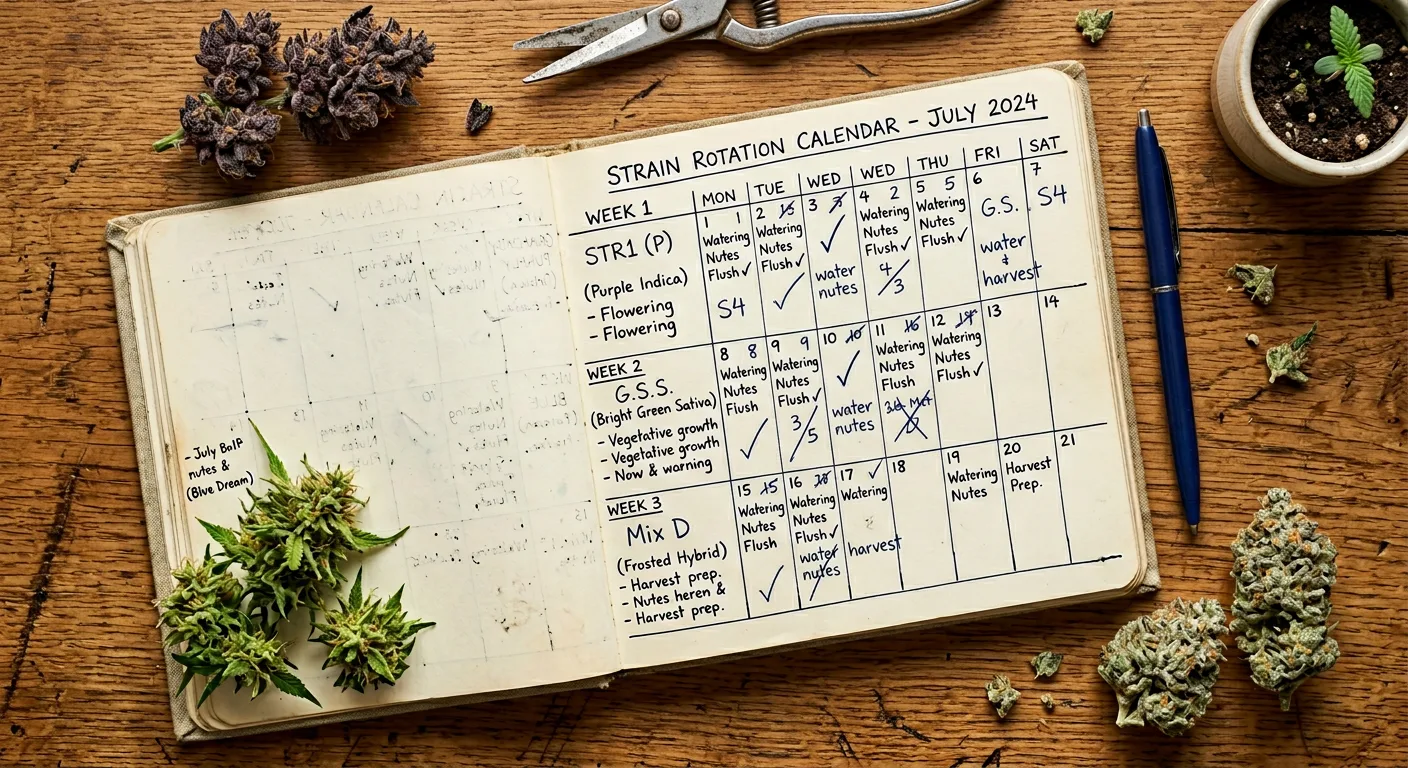 STRAIN ROTATION CALENDAR – JULY 2024
WEEK 1 MON TUE WED WED THU FRI SAT
STR1 (P)
(Purple Indica)
- Flowering
- Flowering
1 1
Watering
Nutes
Flush ✓
S4
2 15
Watering
Nutes
Flush ✓
✓
3
✓
water
nutes
4 2
Watering
Nutes
Flush ✓
4/3
5 5
Watering
Nutes
Flush ✓
6
G.S.
water
&
harvest
7
S4
WEEK 2
G.S.S.
(Bright Green Sativa)
- Vegetative growth
- Vegetative growth
- Now & warning
8 8
Watering
Nutes
Flush
✓
9 9
Watering
Nutes
Flush ✓
3/5
10 10
✓
water
nutes
11 16
Watering
Nutes
Flush
12 14
Watering
Nutes
Flush ✓
13
14
WEEK 3
Mix D
(Frosted Hybrid)
- Harvest prep.
- Nutes heren &
- Harvest prep.
15 15
Watering
Nutes
Flush
✓
16 20
Watering
Nutes
Flush ✓
water
nutes
17 ✓
Watering
harvest
18
19
Watering
Nutes
20
Harvest
Prep.
21
- July BalP
nutes &
(Blue Dream)